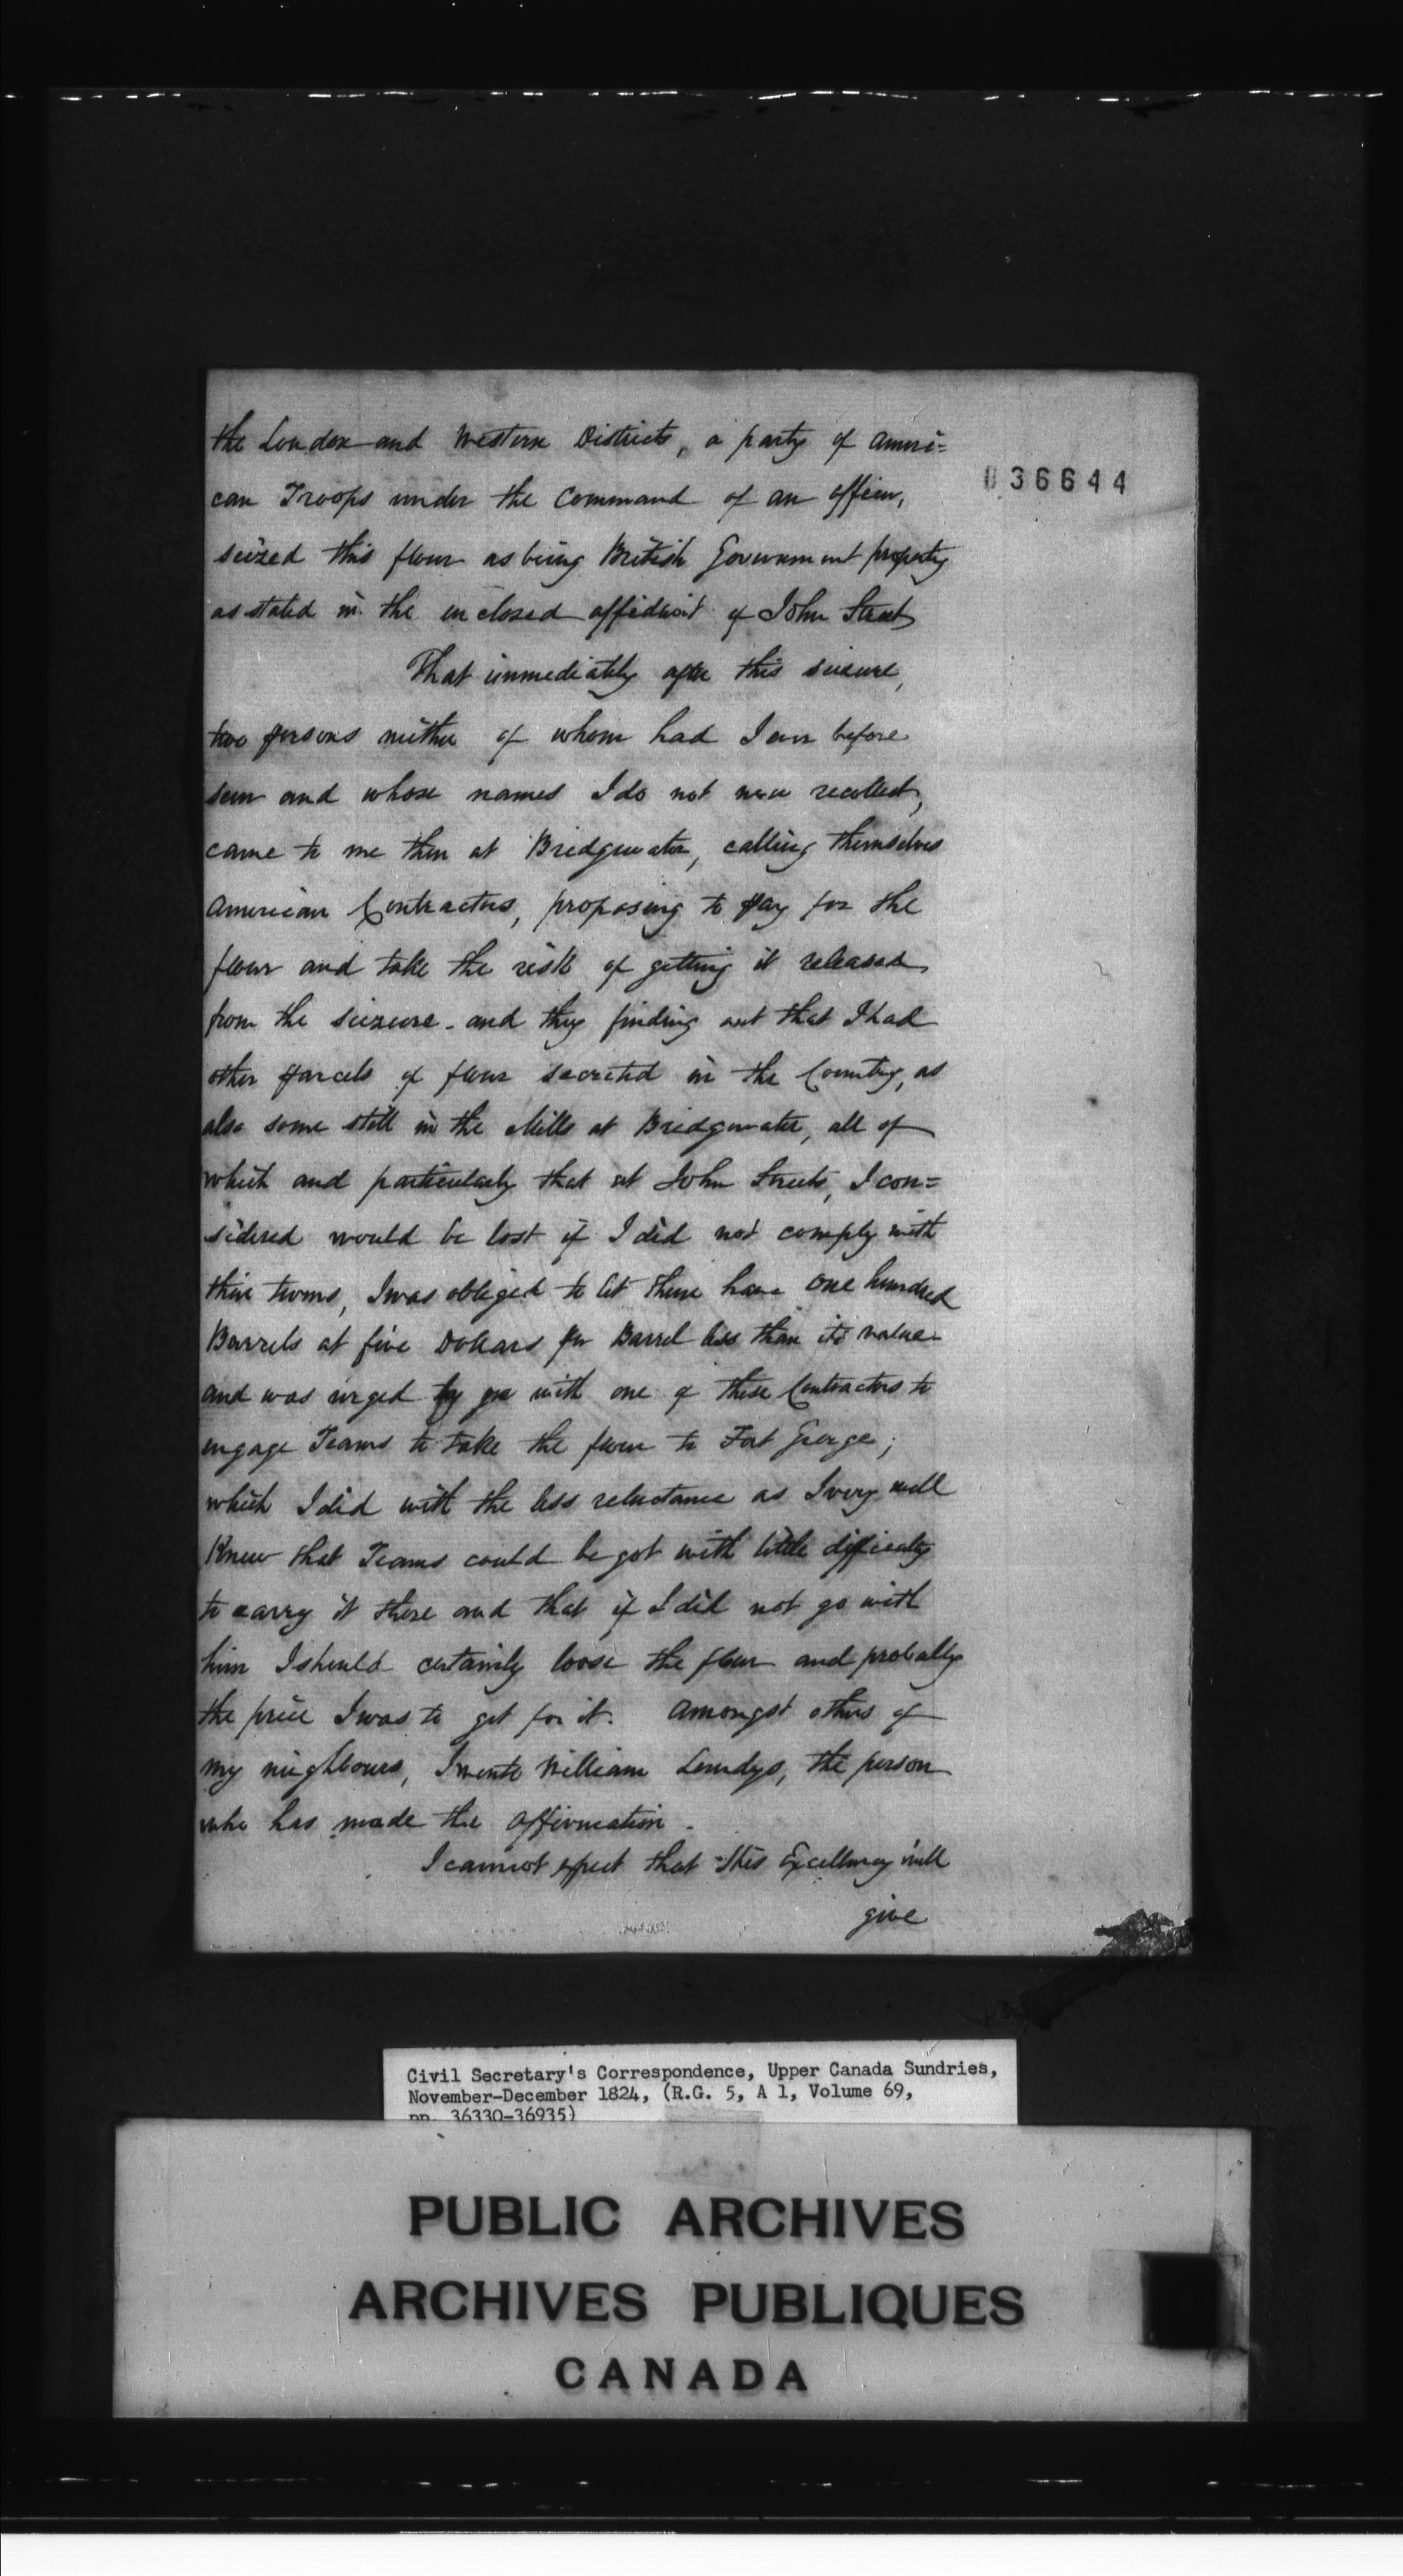 the London and Western Districts, a party of Ameri=
036644
can Troops under the Command of an officer,
seized this flour as being British Government property
as stated in the enclosed affidavit of John Street
That immediately after this seizure,
two persons neither of whom had I ever before
seen and whose names I do not now recollect,
came to me then at Bridgewater, calling themselves
American Contractors, proposing to pay for the
flour and take the risk of getting it released
from the seizure - and they finding out that I had
other parcels of flour secreted in the Country, as
also some still in the Mills at Bridgewater, all of
which and particularly that at John Streets, I con=
sidered would be lost if I did not comply with
their terms, I was obliged to let them have one hundred
Barrels at five Dollars per Barrel less than its value
and was urged to go with one of these Contractors to
engage Teams to take the flour to Fort George;
which I did with the less reluctance as I very well
Knew that Teams could be got with little difficulty
to carry it there and that if I did not go with
him I should certainly loose the flour and probably
the price I was to get for it. Amongst others of
my neighbours, I went William Lundys, the person
who has made the affirmation -
I cannot expect that His Excellency will
give
Civil Secretary's Correspondence, Upper Canada Sundries,
November-December 1824, (R.G. 5, A 1, Volume 69,
pp. 36330-36935)
PUBLIC ARCHIVES
ARCHIVES PUBLIQUES
CANADA